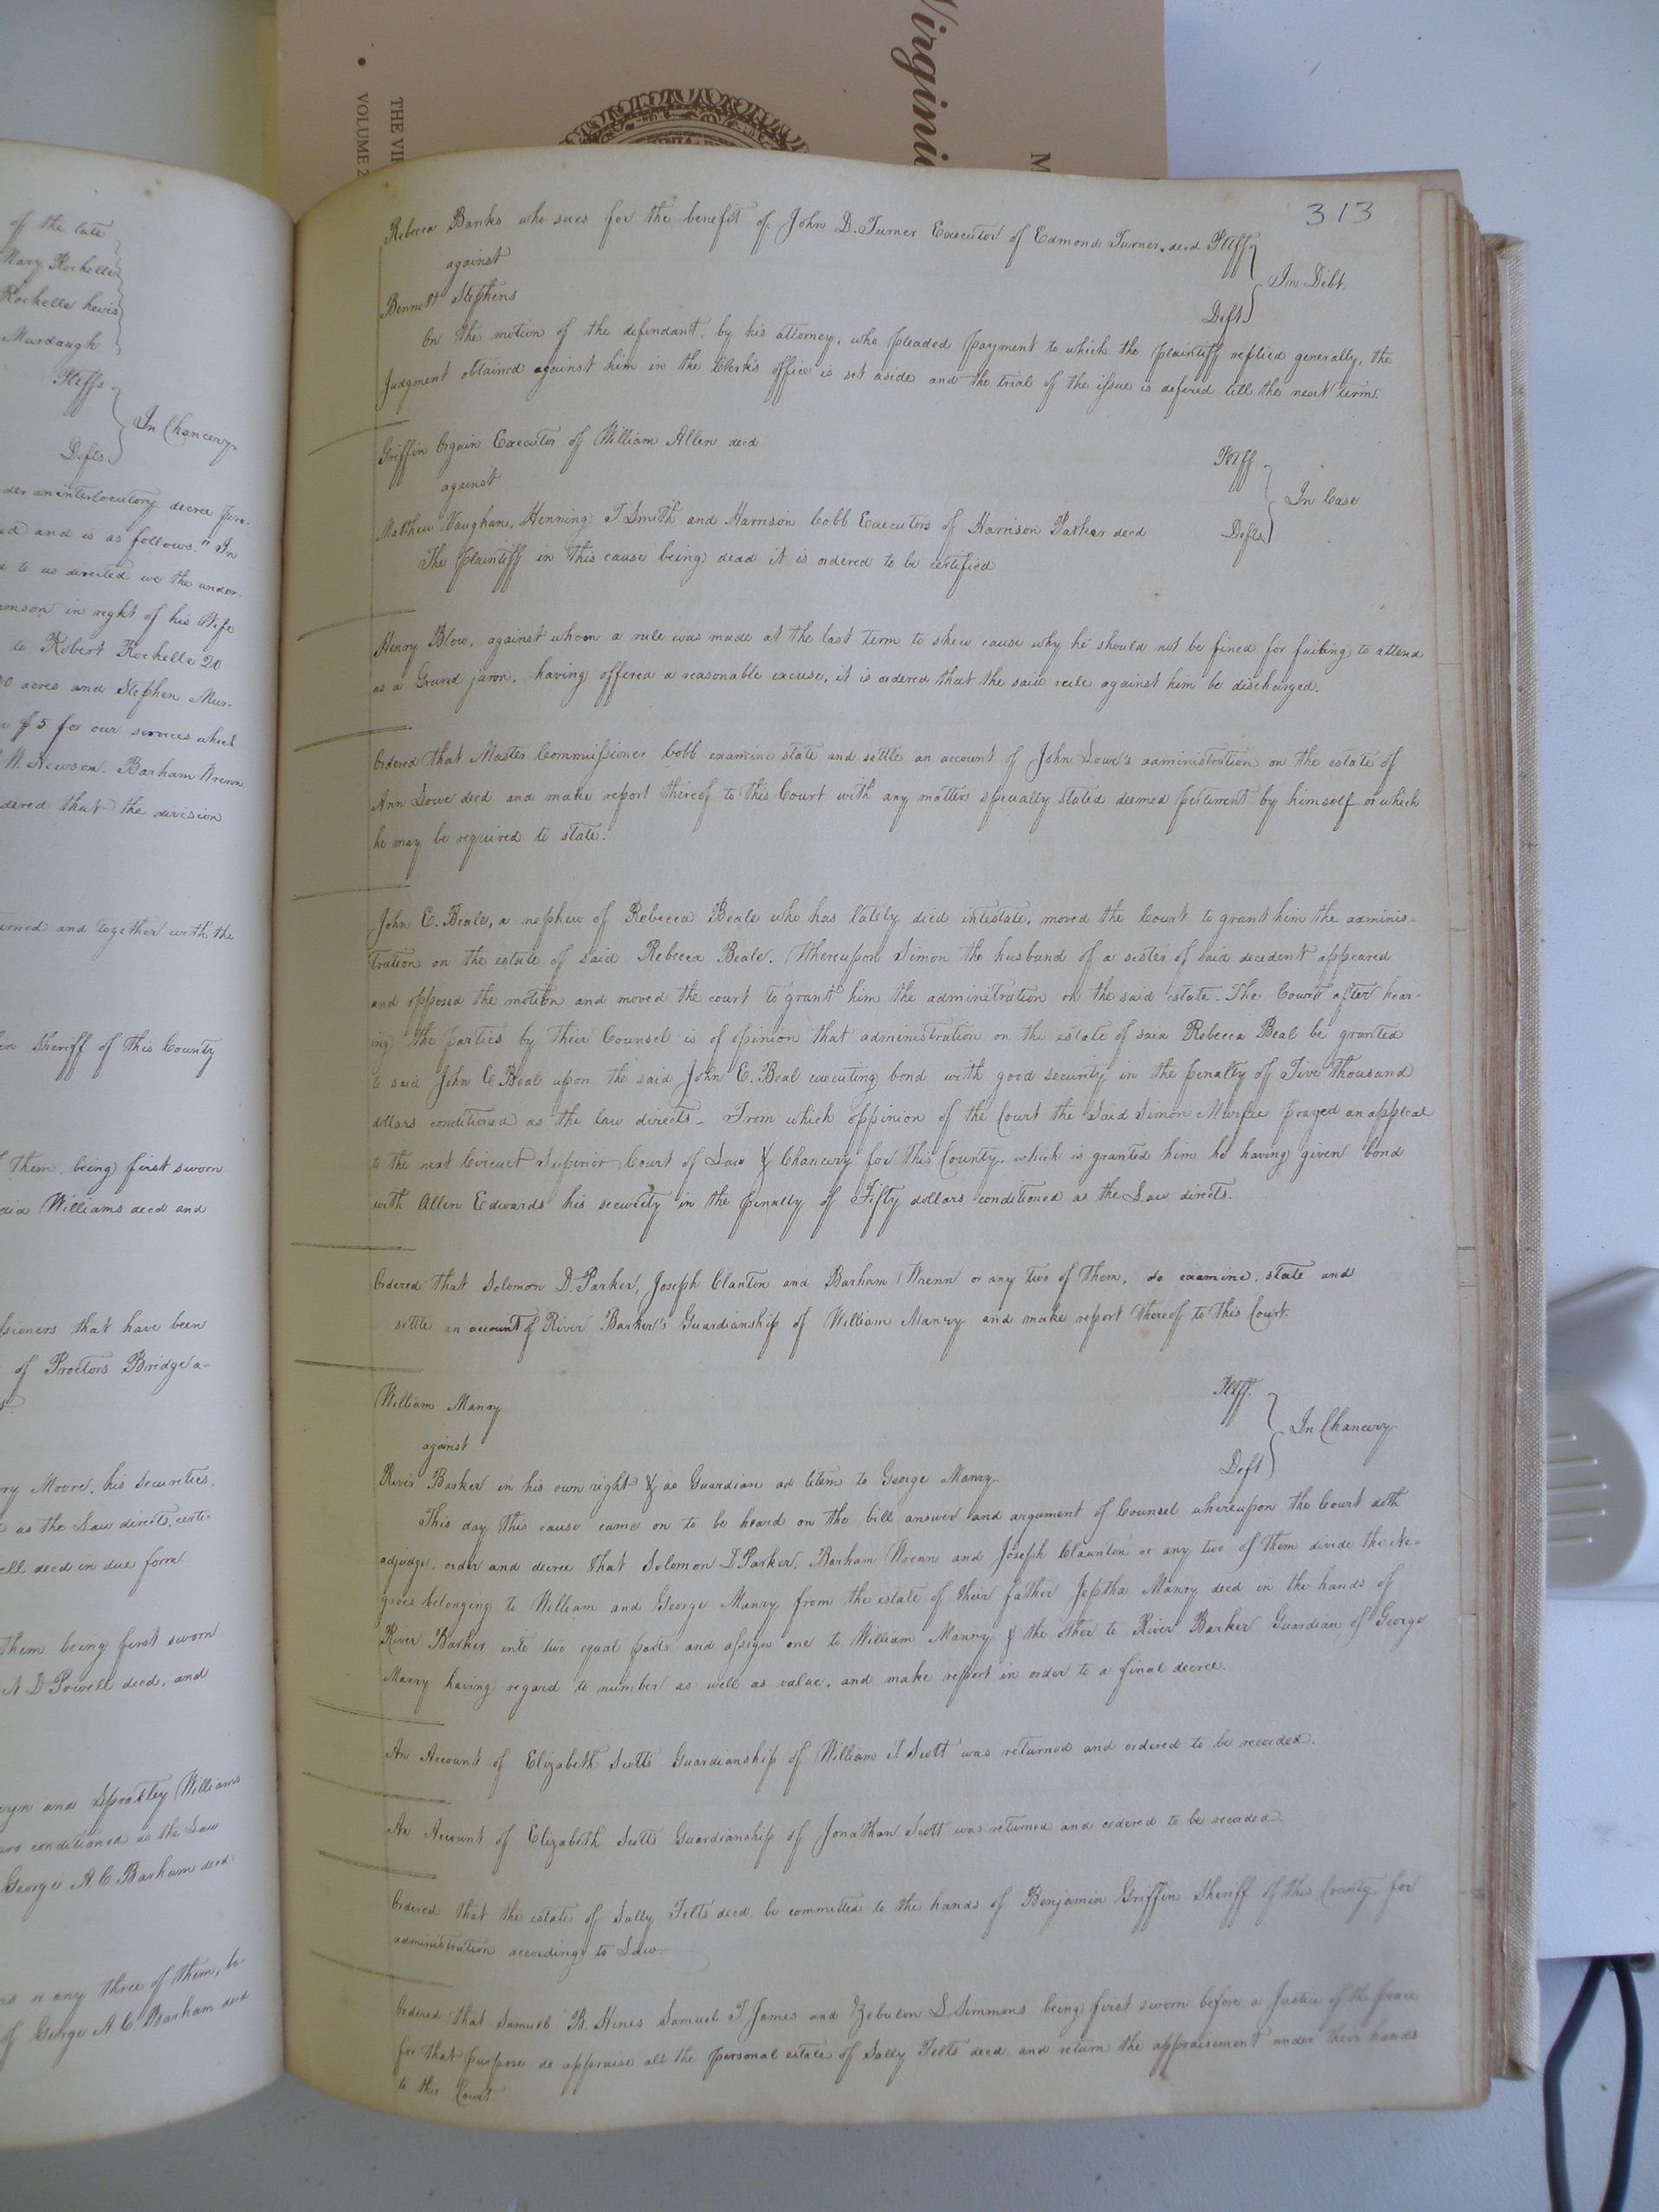 Virgini
M
THE VIR
VOLUME 2
of the late
Mary Rochelle
Rochelle heirs
Murdaugh
Plffs
In Chancery
Defts
der an interlocutory decree pro-
ed and is as follows. "In
e to us directed we the under-
amson in right of his Wife
to Robert Rochelle 20
0 acres and Stephen Mur-
$5 for our services which
N. Newsom. Barham Wrenn
dered that the division
urned and together with the
Sheriff of this County
them being first sworn
Williams decd and
ssioners that have been
of Proctors Bridge a-
ry Moore, his securities,
as the Law directs, certi-
ell decd in due form.
Them being first sworn
A D Powell decd, and
and Spratley Williams
conditioned as the Law
George A. C. Barham decd
or any three of them, be-
of George A C Barham decd
313
Rebecca Banks who sues for the benefit of John D. Turner Executor of Edmond Turner, decd Plff
against
In Debt.
Bennett Stephens
Deft.
On the motion of the defendant, by his attorney, who pleaded payment to which the plaintiff replied generally, the
Judgment obtained against him in the Clerk's office is set aside and the trial of the issue is defered till the next term.
Griffin Orgain Executor of William Allen decd
Plff
against
In Case
Matthew Vaughan, Henning T. Smith and Harrison Cobb Executors of Harrison Parker decd
Defts.
The plaintiff in this cause being dead it is ordered to be certified
Henry Blow, against whom a rule was made at the last term to shew cause why he should not be fined for failing to attend
as a Grand juror, having offered a reasonable excuse, it is ordered that the said rule against him be discharged.
Ordered that Master Commissioner Cobb examine state and settle an account of John Lowe's administration on the estate of
Ann Lowe decd and make report thereof to this Court with any matters specially stated deemed pertinent by himself or which
he may be required to state.
John E. Beale, a nephew of Rebecca Beale who has lately died intestate, moved the Court to grant him the adminis-
tration on the estate of said Rebecca Beale. Whereupon Simon the husband of a sister of said decedent appeared
and opposed the motion and moved the court to grant him the administration on the said estate. The Court after hear-
ing the parties by their Counsel is of opinion that administration on the estate of said Rebecca Beal be granted
to said John E Beal upon the said John E. Beal executing bond with good security in the penalty of Five Thousand
dollars conditioned as the law directs. From which oppinion of the Court the said Simon Murfee prayed an appeal
to the next Circuit Superior Court of Law & Chancery for this County, which is granted him he having given bond
with Allen Edwards his security in the penalty of Fifty dollars conditioned as the Law directs.
Ordered that Solomon D. Parker, Joseph Clanton and Barham Wrenn or any two of them, do examine, state and
settle an account of River Barker's Guardianship of William Manry and make report thereof to this Court.
William Manry
Plff.
against
In Chancery
River Barker in his own right & as Guardian ad litem to George Manry
Deft
This day this cause came on to be heard on the bill answer and argument of Counsel whereupon the Court doth
adjudge, order and decree that Solomon D Parker, Barham Wrenn and Joseph Claunton or any two of them divide the Ne-
groes belonging to William and George Manry from the estate of their father Jeptha Manry decd in the hands of
River Barker into two equal parts and assign one to William Manry & the other to River Barker Guardian of George
Manry having regard to number as well as value, and make report in order to a final decree.
An Account of Elizabeth Scotts Guardianship of William J Scott was returned and ordered to be recorded.
An Account of Elizabeth Scotts Guardianship of Jonathan Scott was returned and ordered to be recorded.
Ordered that the estate of Sally Felts decd. be committed to the hands of Benjamin Griffin Sheriff of this County, for
administration according to Law.
Ordered that Samuel B. Hines Samuel T. James and Zebulon S. Simmons being first sworn before a Justice of the peace
for that purpose do appraise all the personal estate of Sally Felts decd and return the appraisement under their hands
to this Court